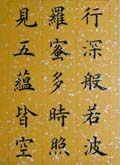 行深般若波
羅蜜多時照
見五蘊皆空